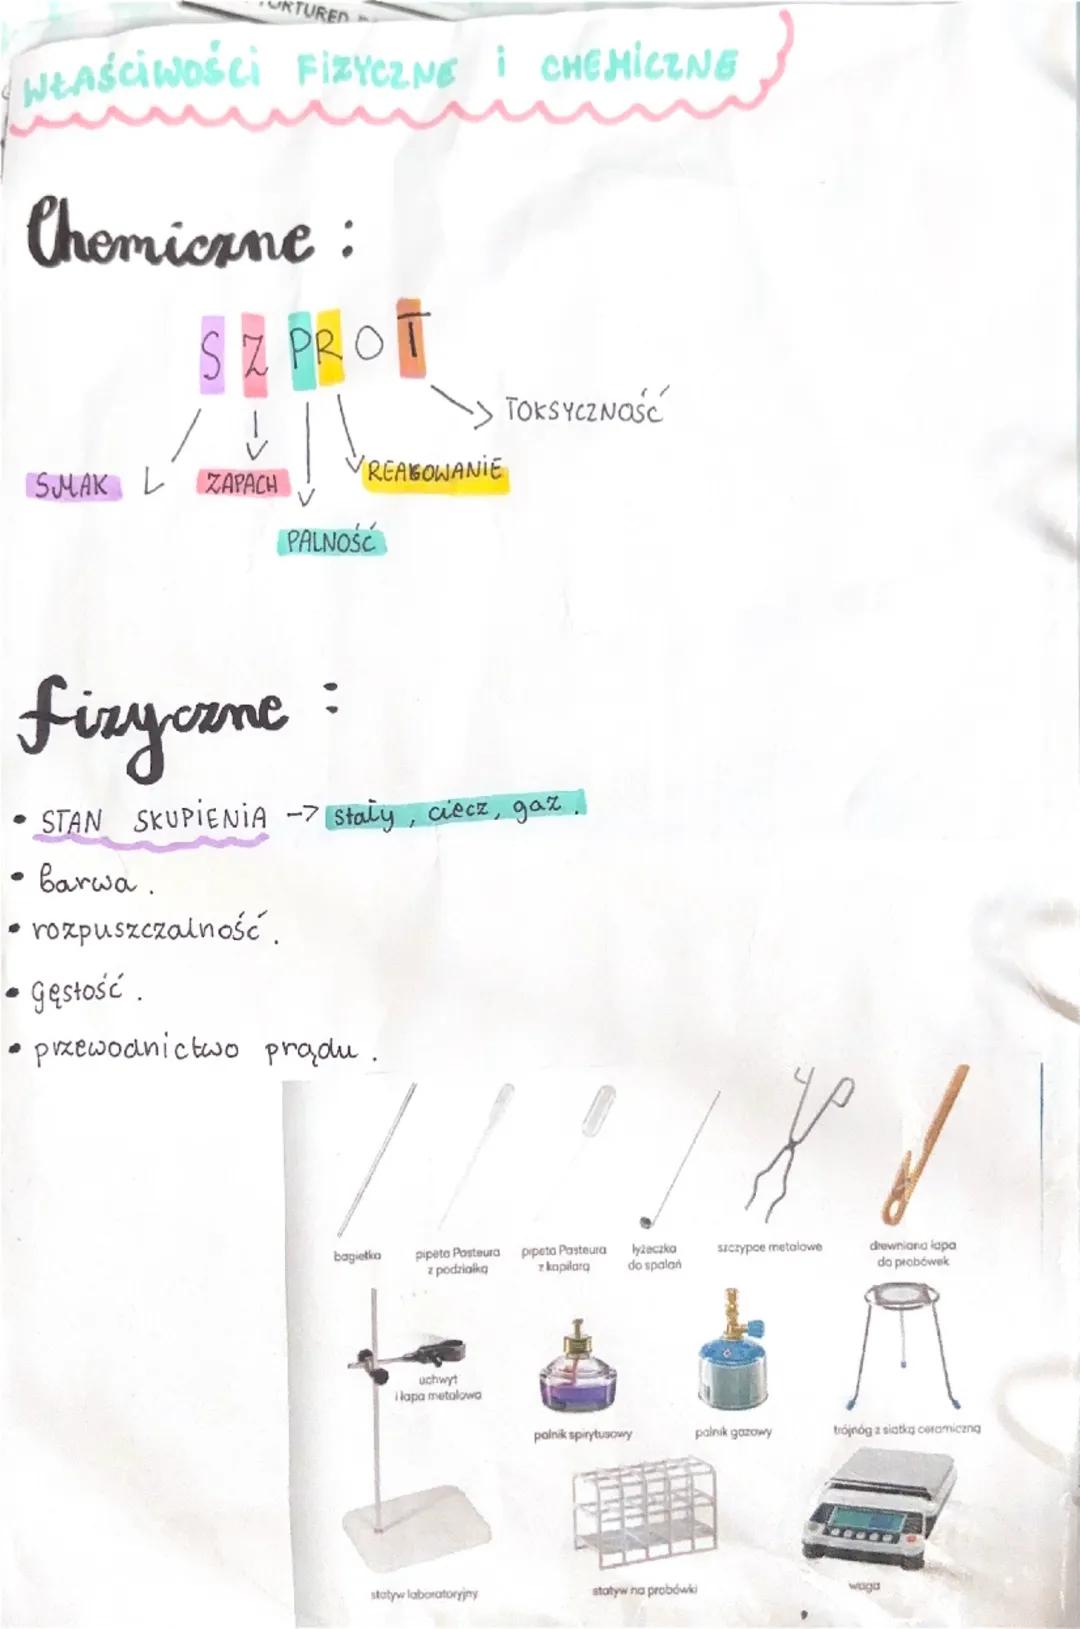 WŁAŚCIWOŚCI FIZYCZNE i CHEMICZNE
Chemiczne :
SZPROT
TOKSYCZNOŚĆ
SMAK ZAPACH REAGOWANIE
PALNOŚĆ
fizyczne :
• STAN SKUPIENIA -> stały, ciecz, gaz.
• barwa.
• rozpuszczalność.
• gęstość.
• przewodnictwo prądu.
bagietka
pipeta Pasteura
z podziałką
pipeta Pasteura
z kapilarą
łyżeczka
do spalań
szczypce metalowe
drewniana łapa
do probówek
uchwyt
i łapa metalowa
palnik spirytusowy
palnik gazowy
trójnóg z siatką ceramiczną
statyw laboratoryjny
statyw na probówki
waga